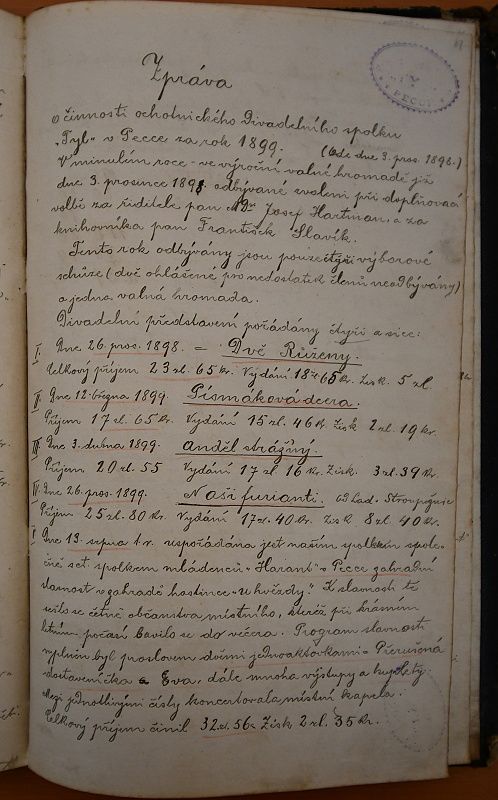 Zpráva
o činnosti ochotnického Divadelního spolku
„Tyl“ v Pecce za rok 1899.
(Ode dne 3. pros. 1898.)
V minulém roce - ve výroční valné hromadě již
dne 3. prosince 1898 odbývané zvoleni při doplňovací
volbě za ředitele pan Josef Hartman, a za
knihovníka pan František Slavík.
Tento rok odbývány jsou pouze čtyři výborové
schůze (dvě ohlášené pro nedostatek členů neodbývány)
a jedna valná hromada.
Divadelní představení pořádány čtyři a sice:
I. Dne 26. pros. 1898. = Dvě Růženy.
Celkový příjem 23 zl. 65 kr. Vydání 18 zl 65 kr. Zisk 5 zl.
II Dne 12 března 1899. Písmákova dcera.
Příjem 17 zl. 65 kr. Vydání 15 zl. 46 kr. Zisk 2 zl. 19 kr.
III Dne 3. dubna 1899. Anděl strážný.
Příjem 20 zl. 55 Vydání 17 zl 16 kr. Zisk 3 zl. 39 kr.
IV. Dne 26. pros. 1899. Naši furianti. od Lad. Stroupežnic
Příjem 25 zl. 80 kr. Vydání 17 zl. 40 kr. Zisk 8 zl. 40 kr.
Dne 13. srpna t. r. uspořádána jest naším spolkem spole-
čně se spolkem mládenců „Harant“ v Pecce zahradní
slavnost v zahradě hostince „U hvězdy“. K slavnosti té
sešlo se četně občanstva místního, kteréž při krásném
letním počasí bavilo se do večera. Program slavnosti
vyplněn byl proslovem dvěmi jednoaktovkami = Přerušená
dostaveníčka a Eva, dále mnoha výstupy a kuplety.
Mezi jednotlivými čísly koncertovala místní kapela.
Celkový příjem činil 32 zl. 56 Zisk 2 zl. 35 kr.